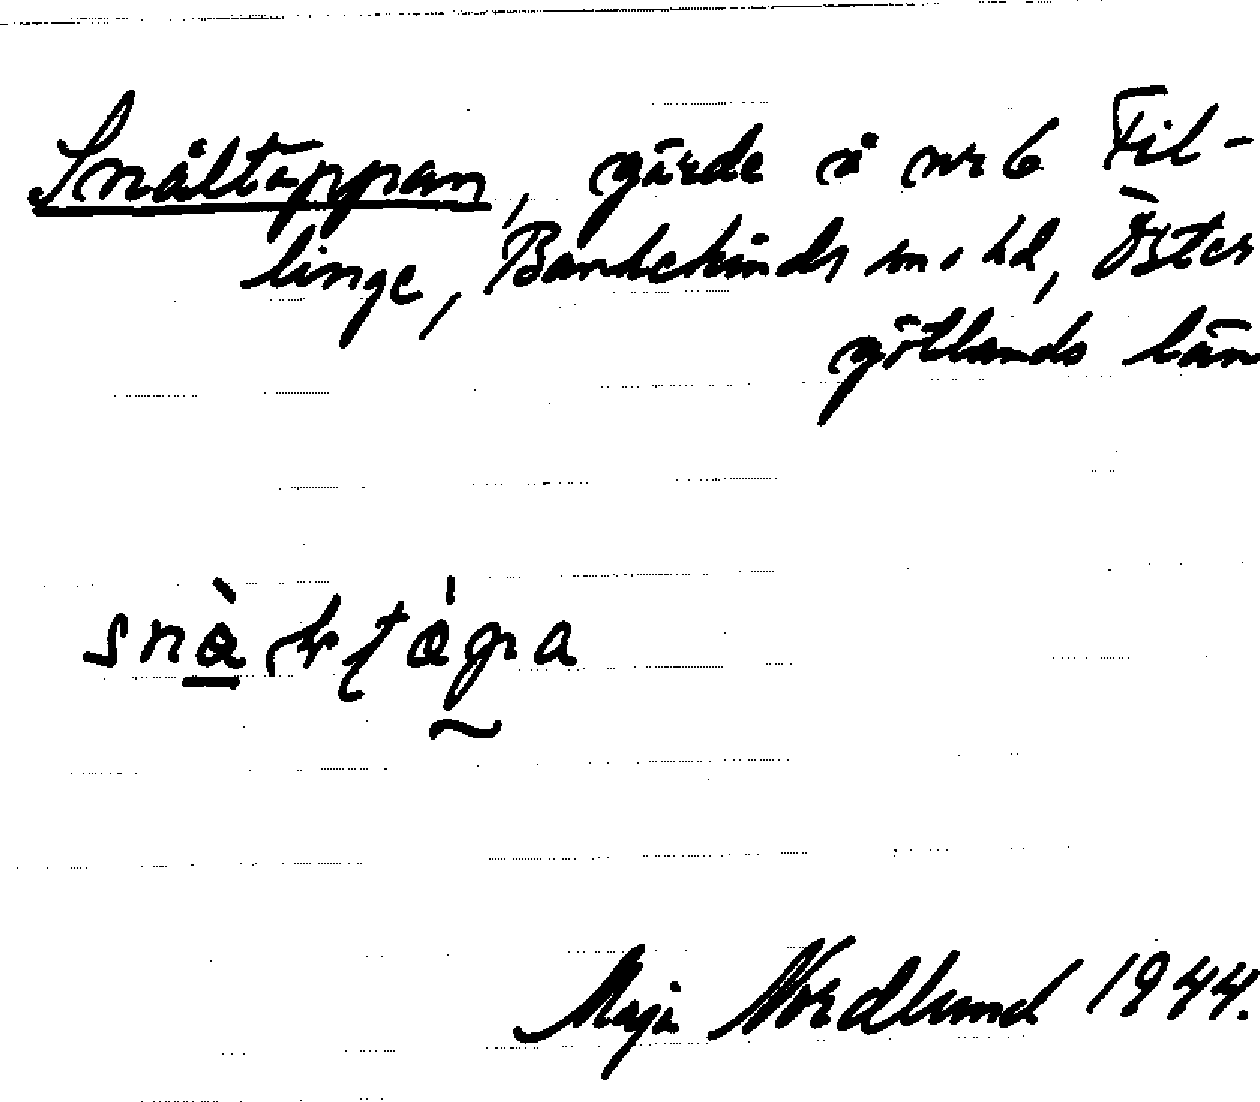 Snåltäppan, gärde å nr 6 Fil-
linge, Bankekinds sn. hd, Öster
götlands län
Maja Nordlund 1944.